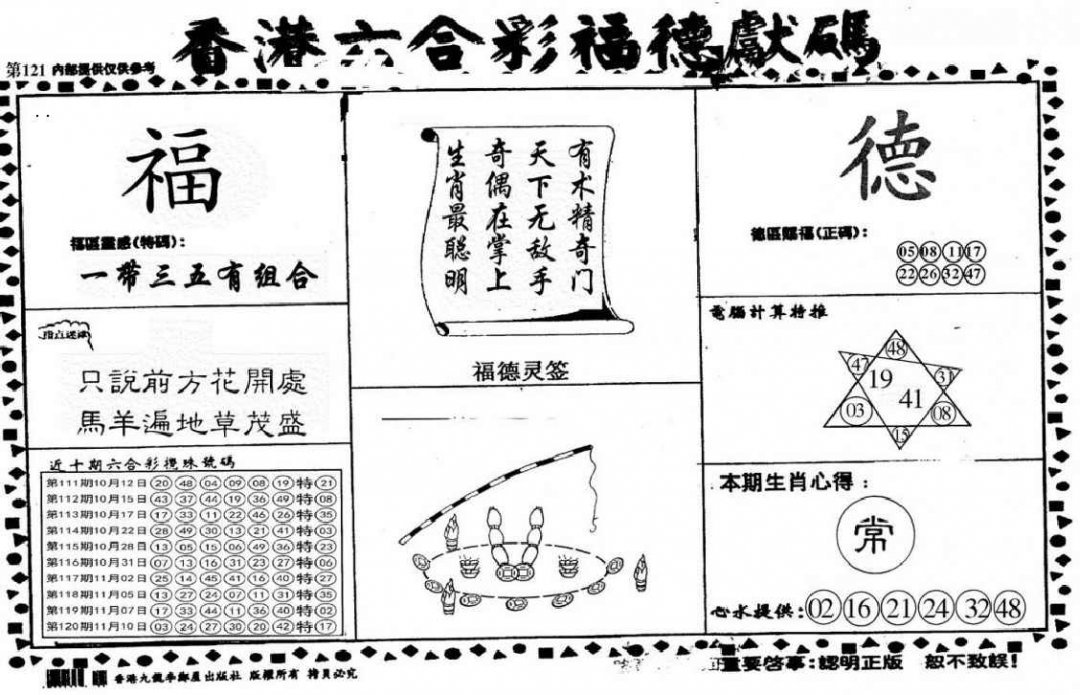 香港六合彩福德獻碼
第121 内部提供仅供参考
福
福區靈感(特碼):
一帶三五有组合
指点迷津
只說前方花開處
馬羊遍地草茂盛
近十期六合彩攪珠號碼
第111期10月12日 20 48 04 09 08 19 特 21
第112期10月15日 43 37 44 19 36 49 特 08
第113期10月17日 17 33 11 22 46 26 特 35
第114期10月22日 28 49 30 13 21 41 特 03
第115期10月28日 13 05 15 06 49 36 特 23
第116期10月31日 07 13 16 31 23 27 特 06
第117期11月02日 25 14 45 41 16 40 特 27
第118期11月05日 13 27 24 07 11 31 特 35
第119期11月07日 17 33 44 11 36 40 特 02
第120期11月10日 03 24 27 30 20 42 特 17
有术精奇门
天下无敌手
奇偶在掌上
生肖最聪明
福德灵签
德
德區賜福(正碼):
05 08 11 17
22 26 32 47
電腦計算特推
48
47
19
31
41
03
08
15
本期生肖心得:
常
心水提供:02 16 21 24 32 48
香港九龍李鄭屋出版社 版權所有 拷貝必究
重要啓事:認明正版 恕不致誤!